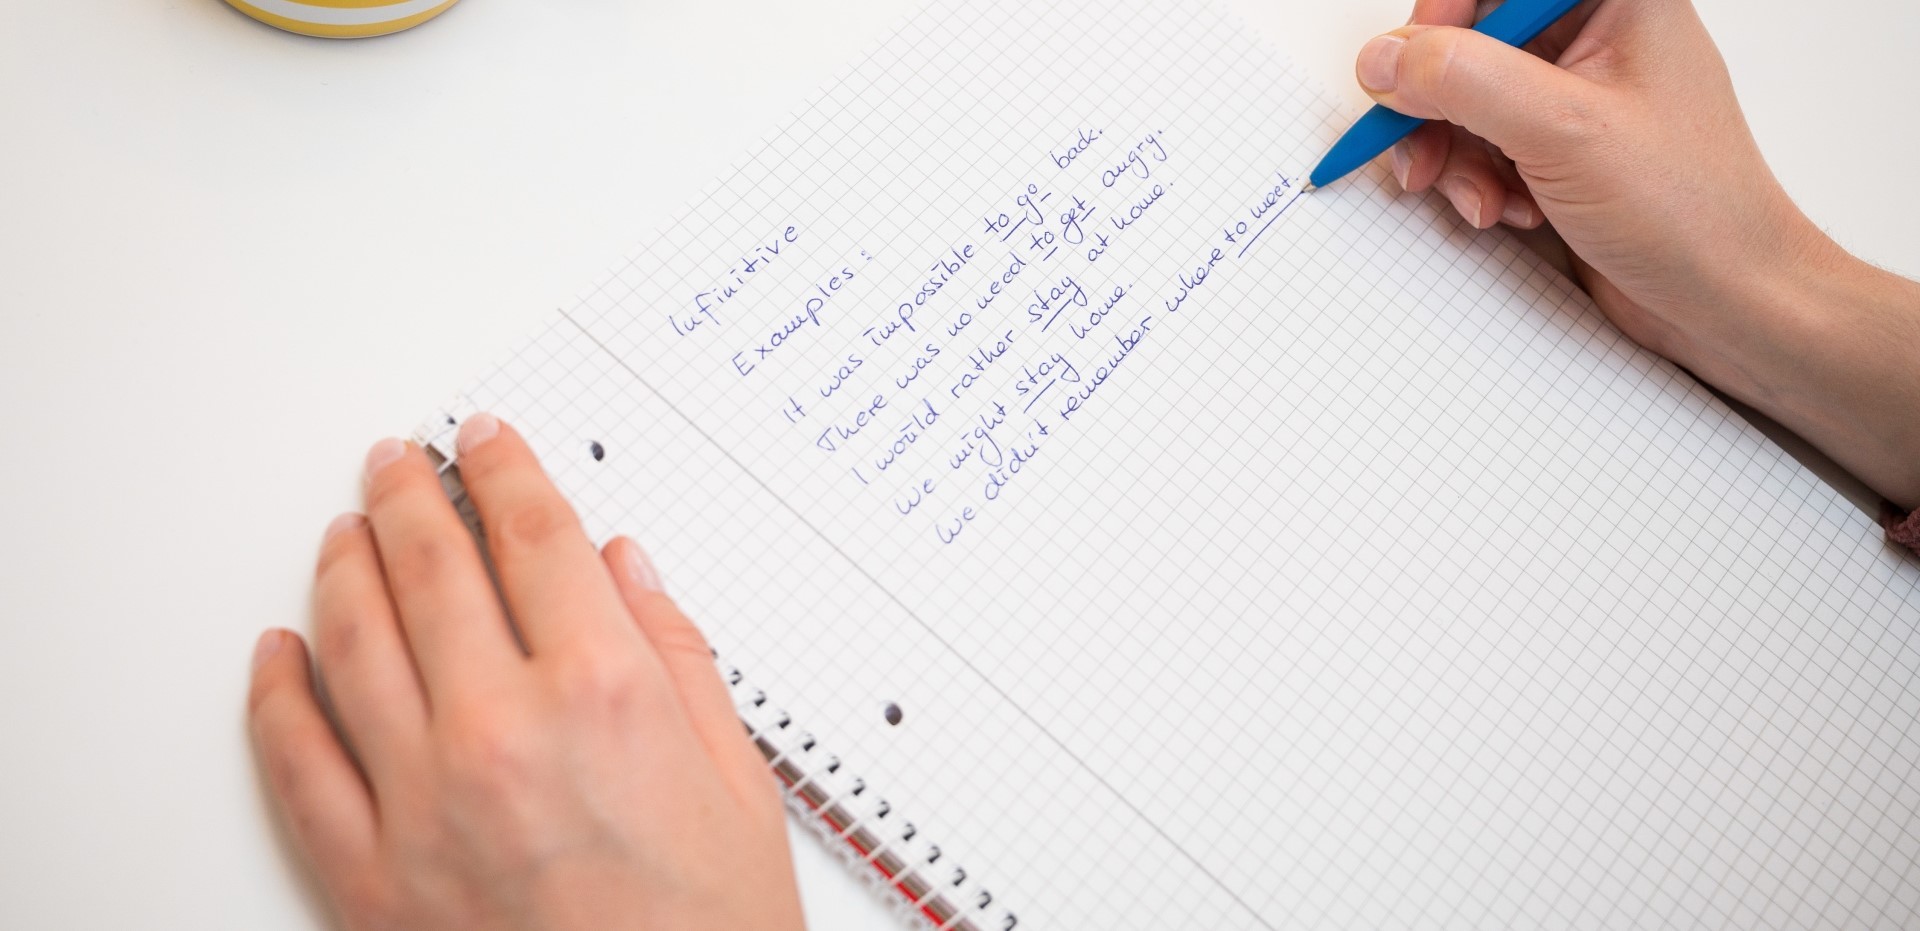 Infinitive
Examples:
It was impossible to go back.
There was no need to get angry.
I would rather stay at home.
We might stay home.
We didn't remember where to meet.